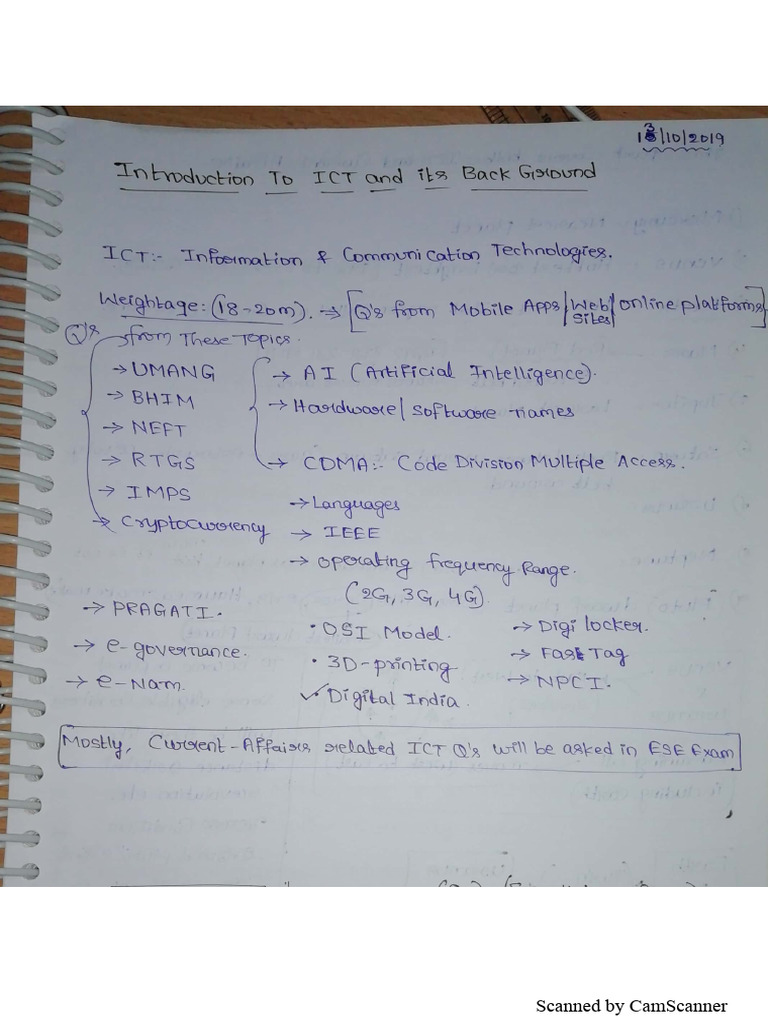 13/10/2019
Introduction To ICT and its Back Ground
ICT:- Information & Communication Technologies.
Weightage: (18-20m). → [Q's from Mobile Apps/Web Sites/online platforms]
Q's from These Topics.
→ UMANG
→ BHIM
→ NEFT
→ RTGS
→ IMPS
→ Cryptocurrency
→ AI (Artificial Intelligence).
→ Hardware/Software names
→ CDMA:- Code Division Multiple Access.
→ Languages
→ IEEE
→ operating frequency Range.
(2G, 3G, 4G).
→ PRAGATI.
→ e-governance.
→ e-Nam.
• OSI Model.
• 3D-printing
✓ Digital India.
→ Digi locker.
→ FasTag
→ NPCI.
Mostly, Current-Affairs related ICT Q's will be asked in ESE Exam
Scanned by CamScanner